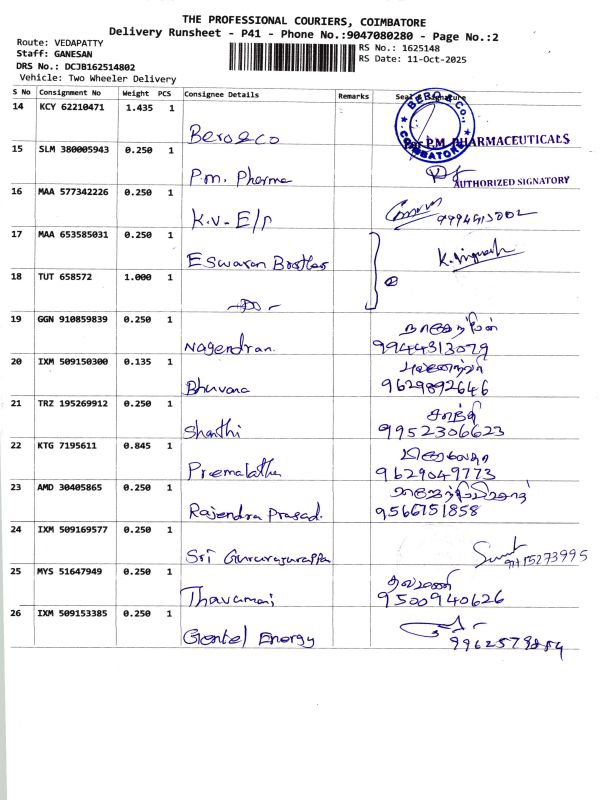 THE PROFESSIONAL COURIERS, COIMBATORE
Delivery Runsheet - P41 - Phone No.:9047080280 - Page No.:2
Route: VEDAPATTY
Staff: GANESAN
DRS No.: DCJB162514802
Vehicle: Two Wheeler Delivery
RS No.: 1625148
RS Date: 11-Oct-2025
S No Consignment No Weight PCS Consignee Details Remarks Seal & Signature
14 KCY 62210471 1.435 1
Bero & co
BERO & Co., COIMBATORE
15 SLM 380005943 0.250 1
For P.M. PHARMACEUTICALS
P.m. Pharma
AUTHORIZED SIGNATORY
16 MAA 577342226 0.250 1
K.V- E/P
17 MAA 653585031 0.250 1
Eswaran Brothers
18 TUT 658572 1.000 1
-DO-
②
19 GGN 910859839 0.250 1
Nagendran.
9944313079
20 IXM 509150300 0.135 1
Bhuvana
9629892646
21 TRZ 195269912 0.250 1
Shanthi
சாந்தி
9952306623
22 KTG 7195611 0.845 1
Premalatha
பிரேமலதா
9629049773
23 AMD 30405865 0.250 1
Rajendra Prasad.
9566751858
24 IXM 509169577 0.250 1
Sri Gururayurappa
25 MYS 51647949 0.250 1
Thavamai
தவமணி
9500940626
26 IXM 509153385 0.250 1
Gentel Energy